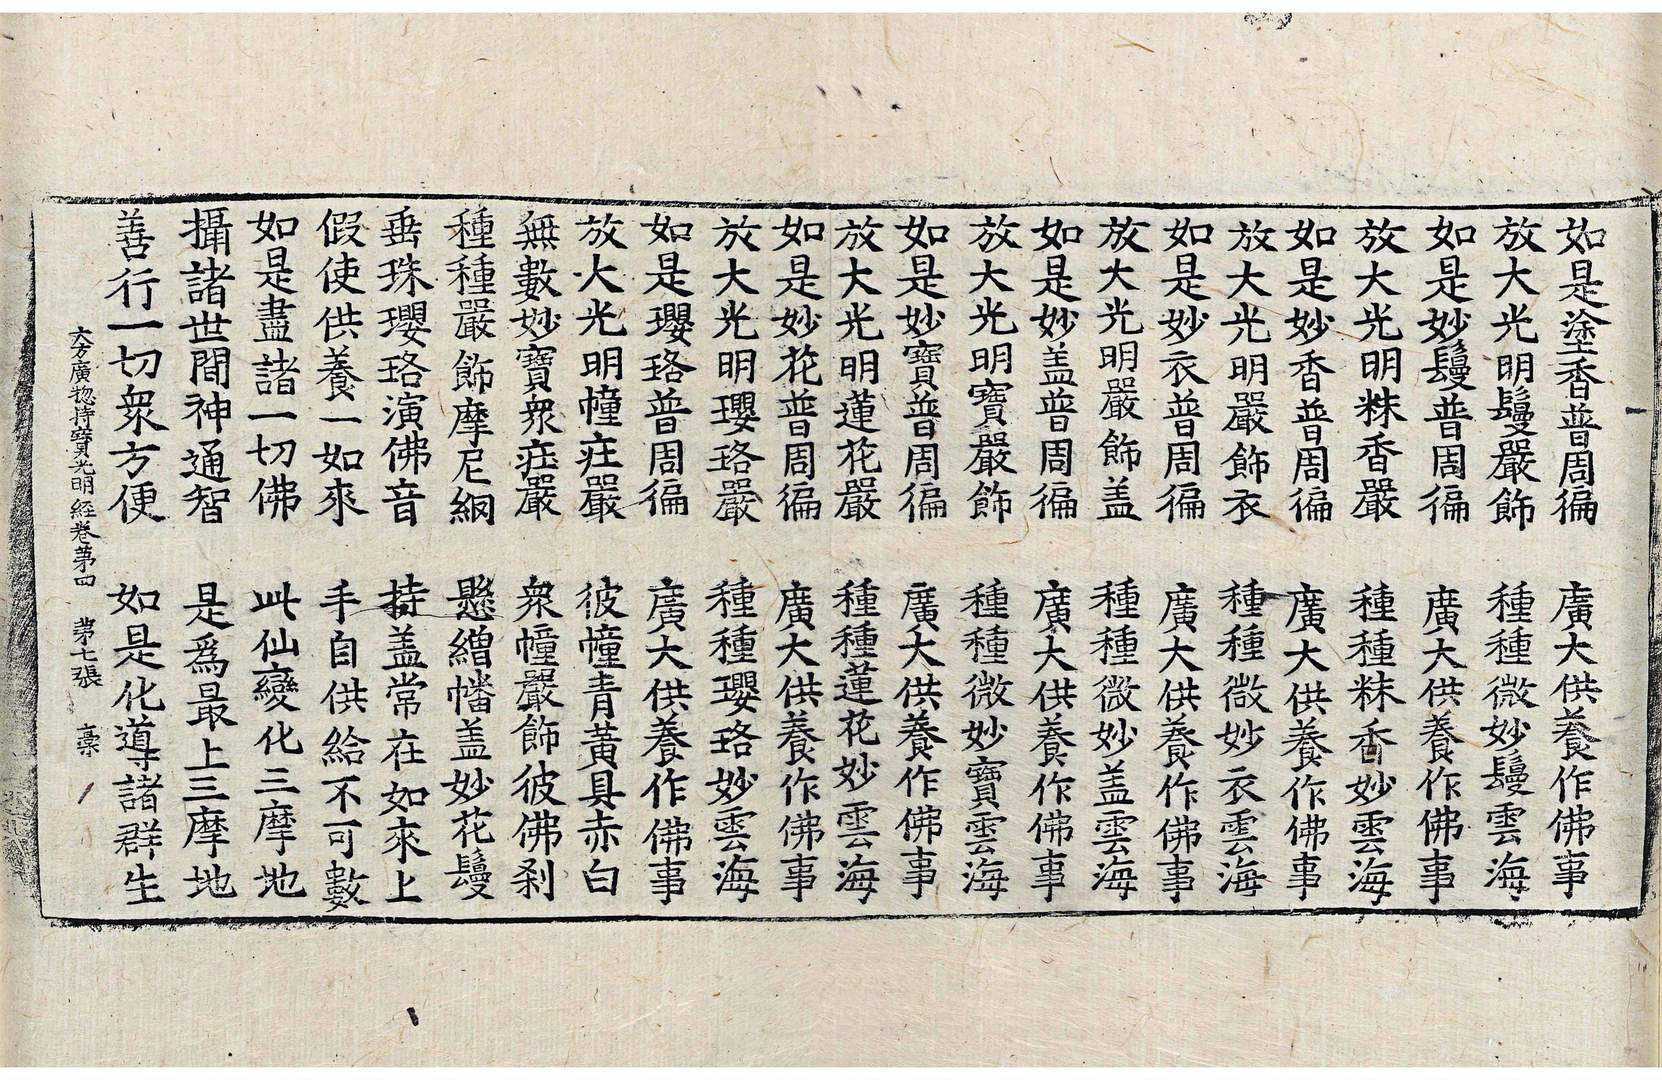 如是塗香普周徧　廣大供養作佛事
放大光明鬘嚴飾　種種微妙鬘雲海
如是妙鬘普周徧　廣大供養作佛事
放大光明粖香嚴　種種粖香妙雲海
如是妙香普周徧　廣大供養作佛事
放大光明嚴飾衣　種種微妙衣雲海
如是妙衣普周徧　廣大供養作佛事
放大光明嚴飾盖　種種微妙盖雲海
如是妙盖普周徧　廣大供養作佛事
放大光明寶嚴飾　種種微妙寶雲海
如是妙寶普周徧　廣大供養作佛事
放大光明蓮花嚴　種種蓮花妙雲海
如是妙花普周徧　廣大供養作佛事
放大光明瓔珞嚴　種種瓔珞妙雲海
如是瓔珞普周徧　廣大供養作佛事
放大光明幢庄嚴　彼幢青黃具赤白
無數妙寶衆庄嚴　衆幢嚴飾彼佛剎
種種嚴飾摩尼網　懸繒幡盖妙花鬘
垂珠瓔珞演佛音　持盖常在如來上
假使供養一如來　手自供給不可數
如是盡諸一切佛　此仙變化三摩地
攝諸世間神通智　是爲最上三摩地
善行一切衆方便　如是化導諸群生
大方廣惚持寶光明經卷苐四　苐七張　槀